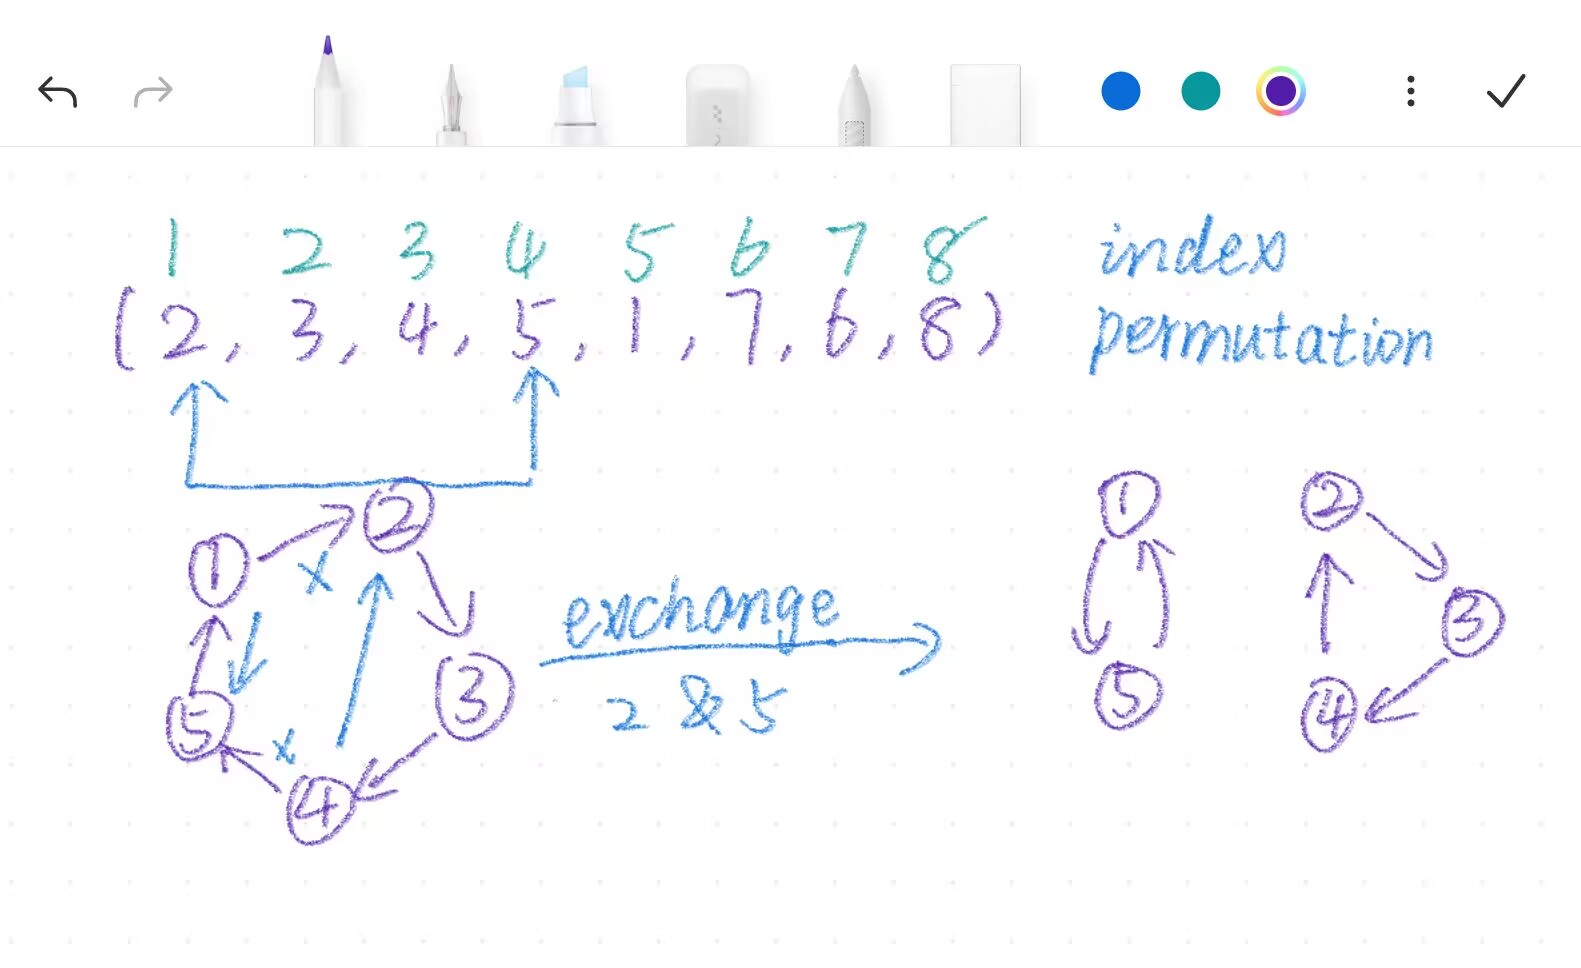 1 2 3 4 5 6 7 8 index
(2, 3, 4, 5, 1, 7, 6, 8) permutation
1 2 3 4 5
x x
exchange
2 & 5
1 2 3 4 5